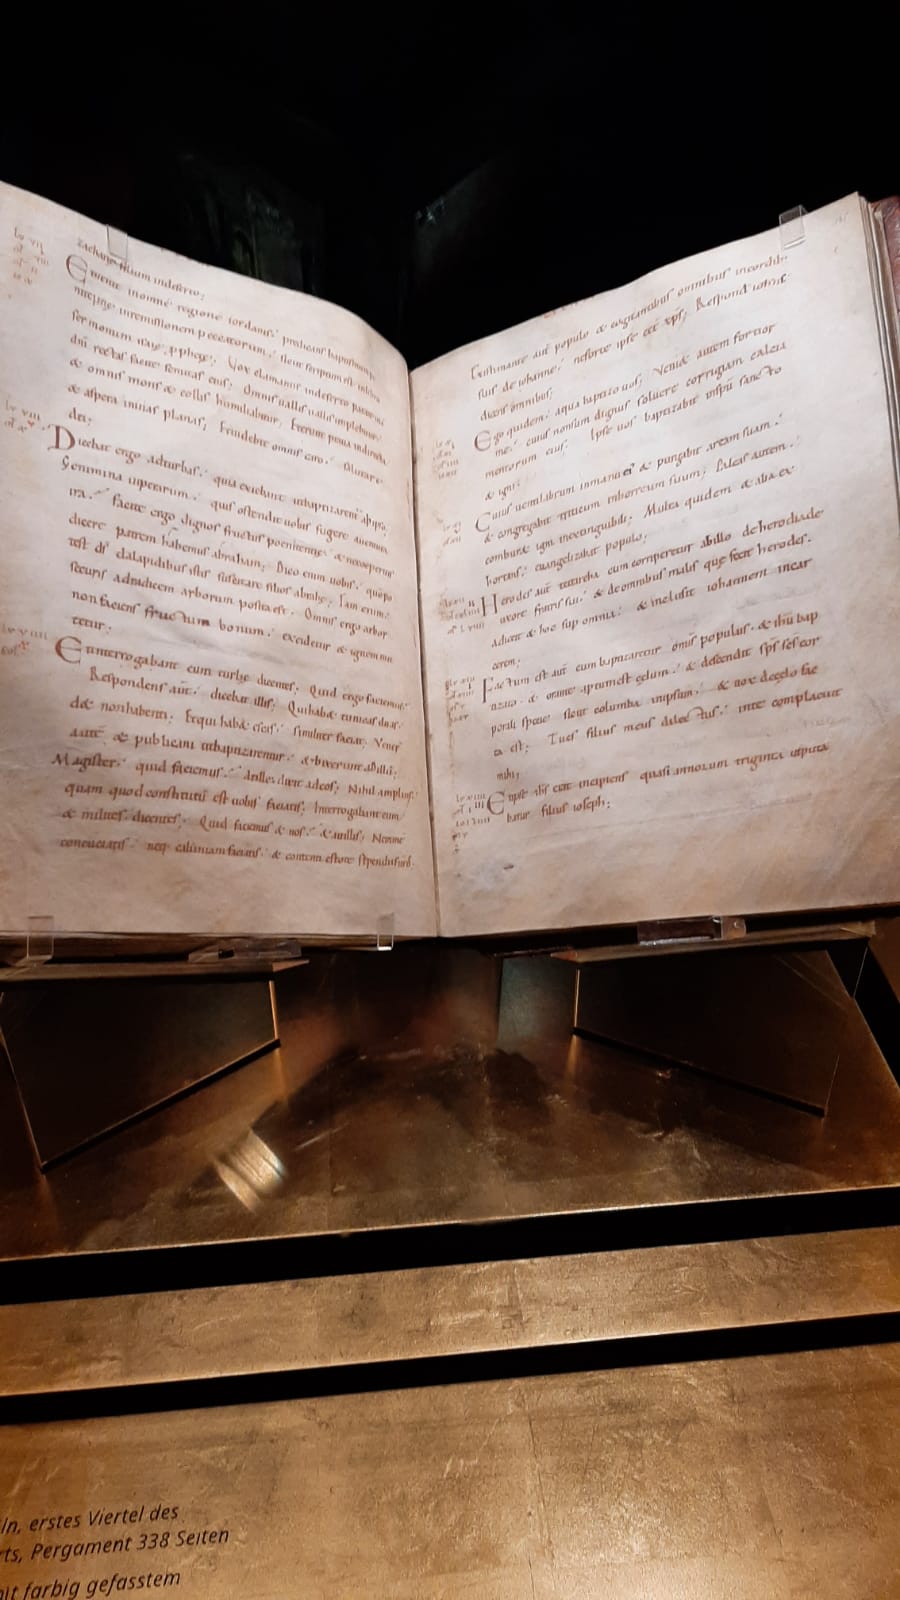 zachariae filium indeserto;
Et uenit inomne regione iordanis. predicans baptismum
penitentiae inremissionem peccatorum; sicut scriptum est inlibro
sermonum esaye pphete; Vox clamantis indeserto parate uia
dni rectas facite semitas eius; Omnis uallis implebitur.
& omnis mons & collis humiliabitur. Et erunt praua indirecta
& aspera inuias planas; Et uidebit omnis caro. salutare
dei;
Dicebat ergo adturbas. quae exiebant utbaptizarent abipso;
Genimina uiperarum. quis ostendit uobis fugere auentura
ira. Facite ergo dignos fructus poenitentiae. & necoeperitis
dicere patrem habemus abraham; Dico enim uobis. quia po
test ds delapidibus istis suscitare filios abrahe; Iam enim
securis adradicem arborum posita est. Omnis ergo arbor
non faciens fructum bonum. excidetur & ignem mit
tetur;
Et interrogabant eum turbe dicentes; Quid ergo faciemus.
Respondens aut. dicebat illis; Qui habet tunicas duas.
det nonhabenti; Et qui habet escas. similiter faciat. Vener
autē & publicani utbaptizarentur. & dixerunt adillū;
Magister. quid faciemus. At ille dixit adeos; Nihil amplius.
quam quod constitutū est uobis faciatis; Interrogabant eum
& milites dicentes; Quid faciemus & nos. & ait illis; Neminē
concutiatis. neq calūniam faciatis. & contenti estote stipendiis urīs
Existimante aut populo & cogitantibus omnibus incordib;
suis de iohanne. neforte ipse eēt xps; Respondit iohs
dicens omnibus;
Ego quidem aqua baptizo uos; Veniet autem fortior
me. cuius nonsum dignus soluere corrigiam calcia
mentorum eius. Ipse uos baptizabit inspū sancto
& igni.
Cuius uentilabrum inmanu ei & purgabit aream suam.
& congregabit triticum inhorreum suum; Paleas autem.
comburet igni inextinguibili; Multa quidem & alia ex
hortans. euangelizabat populo;
Herodes aut tetrarcha cum corriperetur abillo deherodiade
uxore fratris sui. & deomnibus malis que fecit herodes.
adiecit & hoc sup omnia. & inclusit iohannem incar
cerem;
Factum est aut cum baptizaretur omīs populus. & ihū bap
tizato. & orante apertum est celum. & descendit sps scs cor
porali specie sicut columba inipsum. & uox decelo fac
ta est; Tu es filius meus dilectus. inte complacuit
mihi;
Et ipse ihs erat incipiens quasi annorum triginta utputa
batur filius ioseph;
ln, erstes Viertel des
rts, Pergament 338 Seiten
mit farbig gefasstem